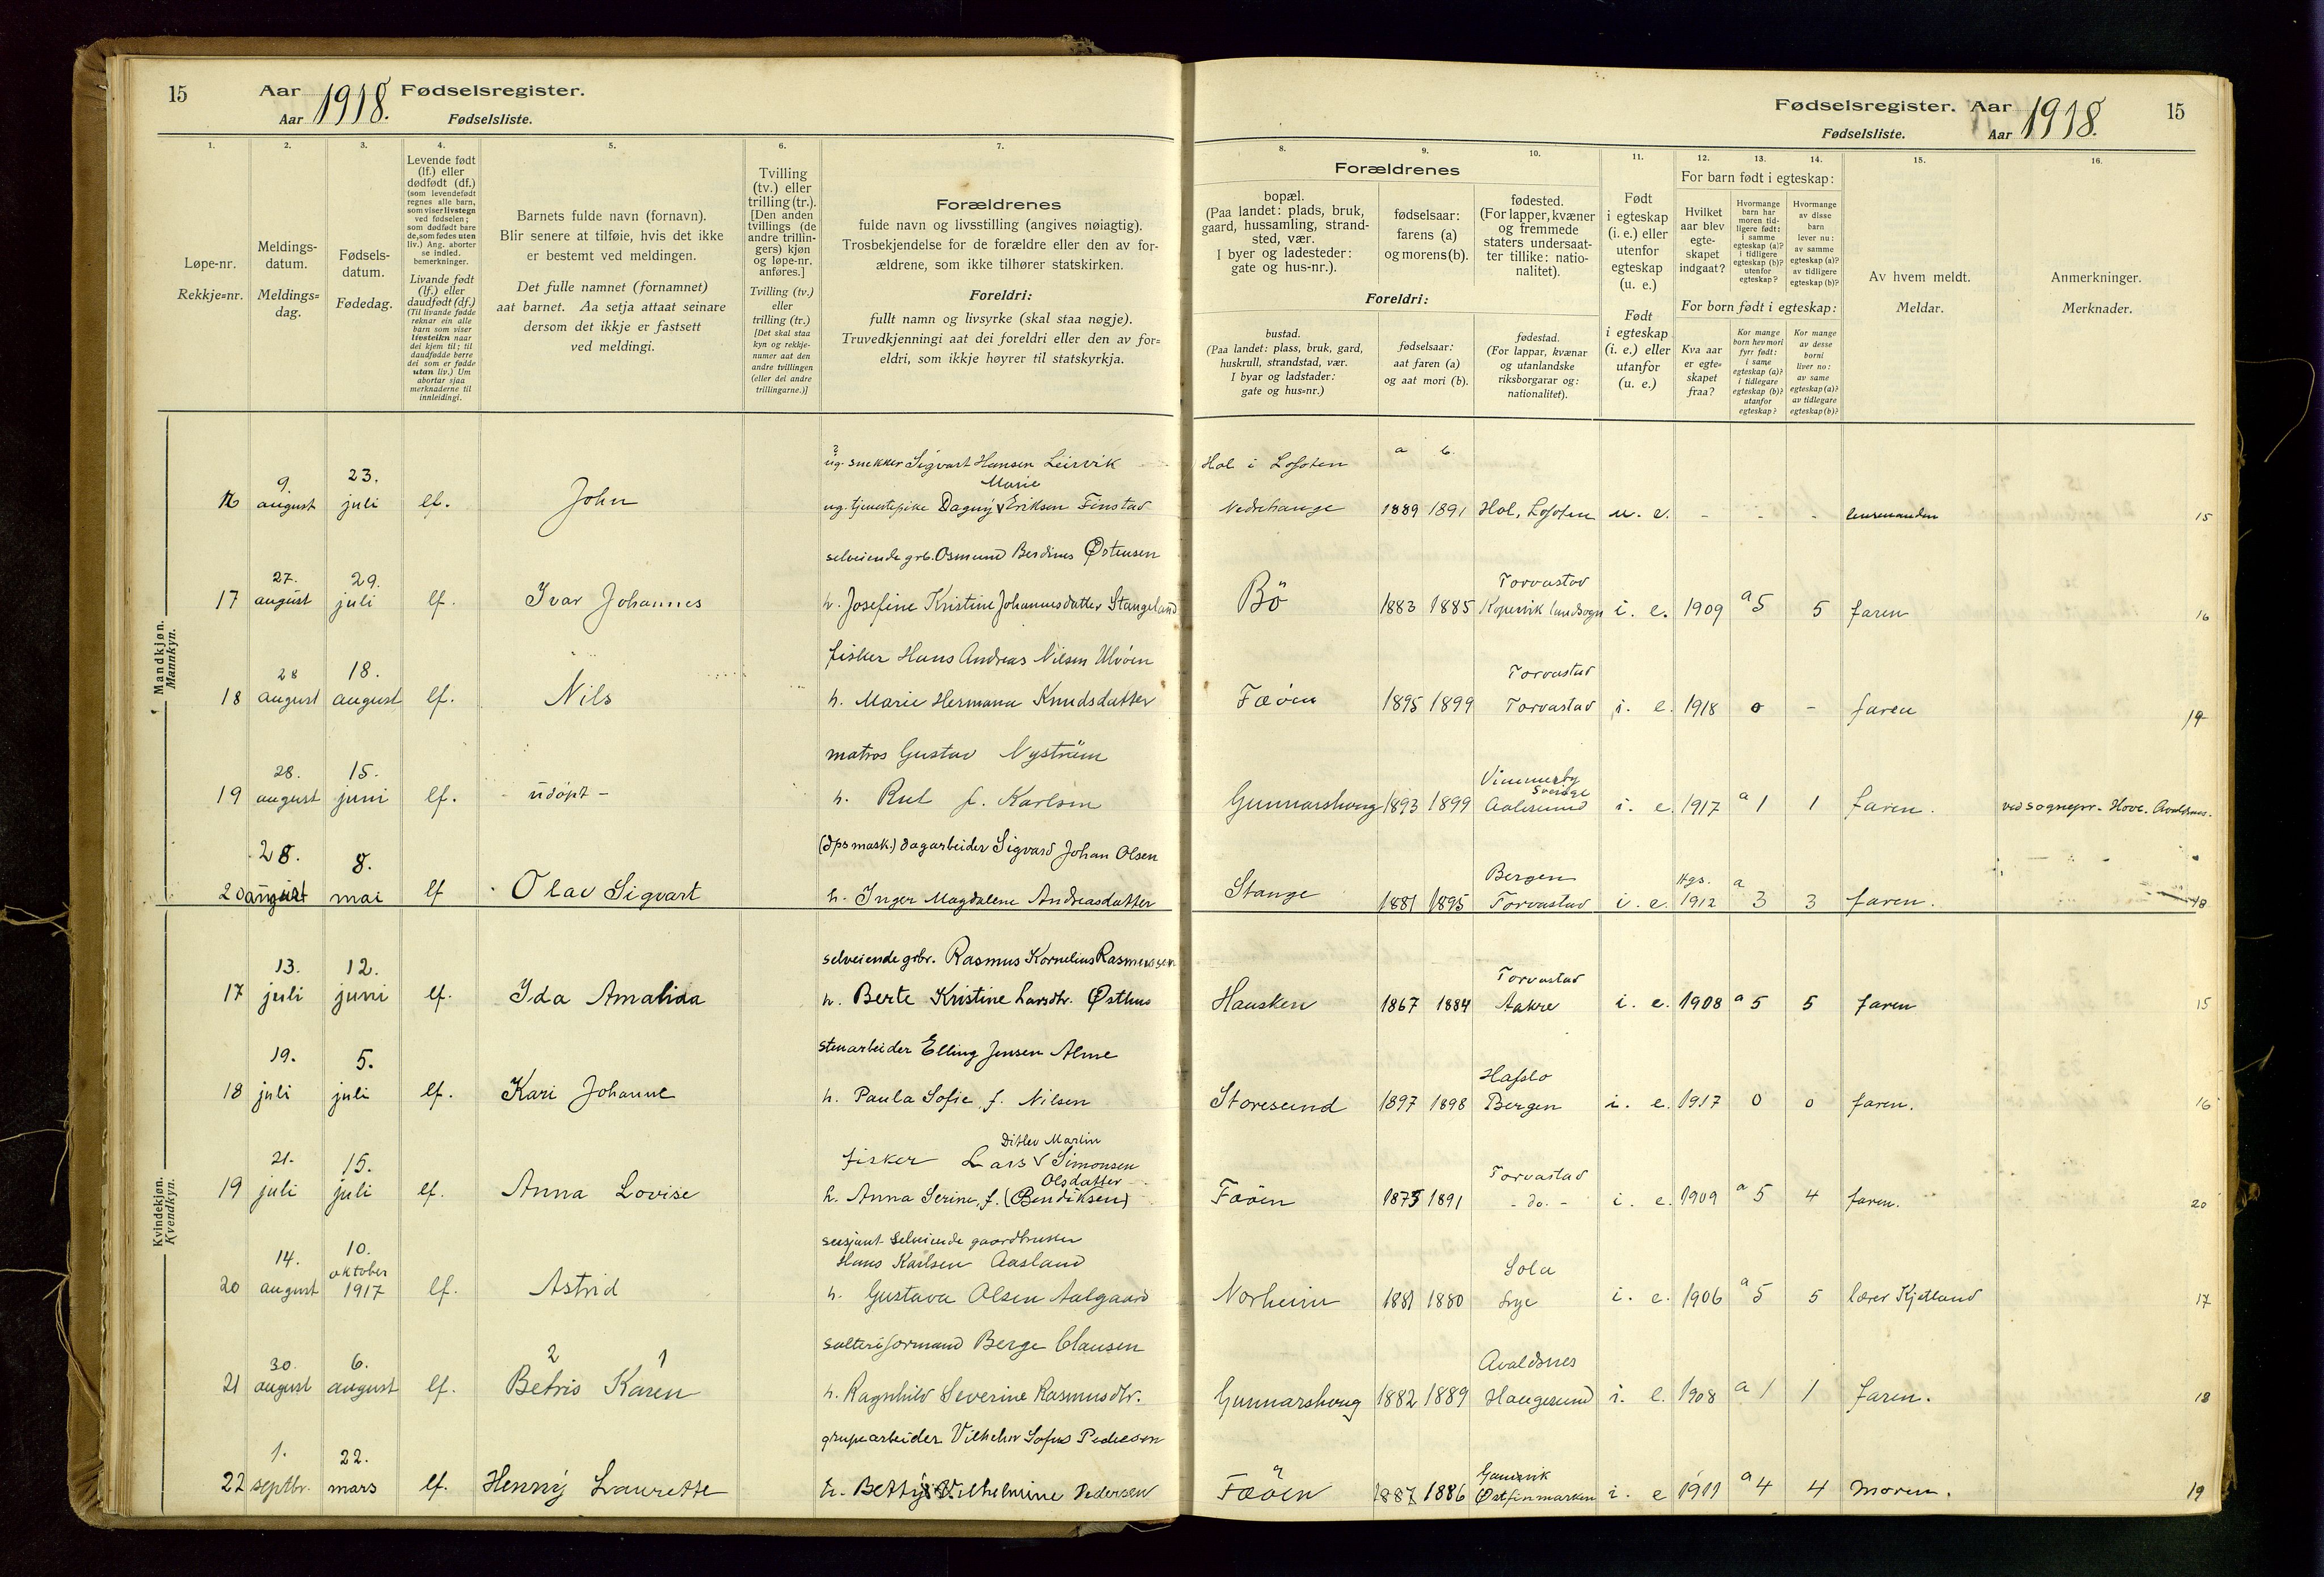 15 Aar 1918. Fødselsregister.
Aar Fødselsliste.
Fødselsregister. Aar 1918. 15
Fødselsliste. Aar
1. 2. 3. 4. 5. 6. 7.
Løpe-nr.
Rekkje=nr.
Meldings-
datum.
Meldings=
dag.
Fødsels-
datum.
Fødedag.
Levende født
(lf.) eller
dødfødt (df.)
(som levendefødt
regnes alle barn,
som viser livstegn
ved fødselen;
som dødfødt bare
de, som fødes uten
liv.) Ang. aborter
se indled.
bemerkninger.
Livande født
(lf.) eller
daudfødt (df.)
(Til livande fødde
reknar ein alle
barn som viser
livsteikn naar
dei kjem til; til
daudfødde berre
dei som er fødde
utan liv.) Um
abortar sjaa
merknaderne til
innleidingi.
Barnets fulde navn (fornavn).
Blir senere at tilføie, hvis det ikke
er bestemt ved meldingen.
Det fulle namnet (fornamnet)
aat barnet. Aa setja attaat seinare
dersom det ikkje er fastsett
ved meldingi.
Tvilling
(tv.) eller
trilling (tr.).
[Den anden
tvillings (de
andre trillin-
gers) kjøn
og løpe-nr.
anføres.]
Tvilling (tv.)
eller
trilling (tr.)
[Det skal staa
kyn og rekkje-
numer aat den
andre tvillingen
(eller dei andre
trillingarne.)]
Forældrenes
fulde navn og livsstilling (angives nøiagtig).
Trosbekjendelse for de forældre eller den av for-
ældrene, som ikke tilhører statskirken.
Foreldri:
fullt namn og livsyrke (skal staa nøgje).
Truvedkjenningi aat dei foreldri eller den av for=
eldri, som ikkje høyrer til statskyrkja.
8. 9. 10. 11. 12. 13. 14. 15. 16.
Forældrenes
bopæl.
(Paa landet: plads, bruk,
gaard, hussamling, strand-
sted, vær.
I byer og ladesteder:
gate og hus-nr.).
fødselsaar:
farens (a)
og morens (b).
fødested.
(For lapper, kvæner
og fremmede
staters undersaat-
ter tillike: natio-
nalitet).
Foreldri:
bustad.
(Paa landet: plass, bruk, gard,
huskrull, strandstad, vær.
I byar og ladstader:
gate og hus=nr.)
fødselsaar:
aat faren (a)
og aat mori (b).
fødestad.
(For lappar, kvænar
og utanlandske
riksborgarar og:
nationalitet).
Født
i egteskap
(i. e.) eller
utenfor
egteskap
(u. e.)
Født
i egteskap
(i. e.) eller
utanfor
(u. e.)
For barn født i egteskap:
Hvilket
aar blev
egte-
skapet
indgaat?
Hvormange
barn har
moren tid-
ligere født:
i samme
egteskap (a)?
i tidligere
egteskap (b)?
utenfor
egteskap?
Hvormange
av disse
barn
lever nu:
av samme
egteskap (a)?
av tidligere
egteskap (b)?
For born født i egteskap:
Kva aar
er egte=
skapet
fraa?
Kor mange
born hev mori
fyrr født:
i same
egteskap (a)?
i tidlegare
egteskap (b)?
utanfor
egteskap?
Kor mange
av desse
borni
liver no:
av same
egteskap (a)?
av tidlegare
egteskap (b)?
Av hvem meldt.
Meldar.
Anmerkninger.
Merknader.
Mandkjøn.
Mannkyn.
ug. snekker Sigvart Hansen Leirvik Hol i Lofoten a b.
9. 23. Marie
august juli lf. John ug. tjenestepike Dagny v Eriksen Finstad Nedrehauge 1889 1891 Hol, Lofoten u. e. - - - lensmanden 15
selveiende grb. Osmund Berdines Østensen
27. 29. Torvastad
17 august juli lf. Ivar Johannes h. Josefine Kristine Johannesdatter Stangeland Bö 1883 1885 Kopervik landsogn i. e. 1909 a 5 5 faren 16
fisker Hans Andreas Nilsen Ulvöen
28 18. Torvastad
18 august august lf. Nils h. Marie Hermana Knudsdatter Fæöen 1895 1899 Torvastad i. e. 1918 0 - faren 17
matros Gustav Nyström
28. 15. Vimmerby Sverige
19 august juni lf. - udöpt - h. Rut f. Karlsen Gunnarshaug 1893 1899 Aalesund i. e. 1917 a 1 1 faren. ved sognepr. Hove. Avaldsnes.
(dpsmask.) dagarbeider Sigvard Johan Olsen
28. 8. Bergen Hgs. a
20 august mai lf Olav Sigvart h. Inger Magdalene Andreasdatter Stange 1881 1895 Torvastad i. e. 1912 3 3 faren. 18
Kvindekjøn.
Kvendkyn.
selveiende grbr. Rasmus Kornelius Rasmussen
13. 12. Torvastad
17 juli juni lf. Ida Amalida h. Berte Kristine Larsdtr. Østhus Hausken 1867 1884 Aakre i. e. 1908 a 5 5 faren 15
stenarbeider Elling Jensen Alme
19. 5. Hafslo
18 juli juli lf. Kari Johanne h. Paula Sofie, f. Nilsen Storesund 1897 1898 Bergen i. e. 1917 0 0 faren. 16
Ditlev Martin
21. 15. fisker Lars v Simonsen Torvastad
Olsdatter
19 juli juli lf. Anna Lovise h. Anna Serine, f. (Bendiksen) Fæöen 1875 1891 - do. - i. e. 1909 a 5 4 faren. 20
sersjant selveiende gaardbruker
14. 10. oktober Hans Karlsen Aasland Sola
20 august 1917 lf. Astrid h. Gustava Olsen Aalgaard Norheim 1881 1880 Lye i. e. 1906 a 5 5 lærer Kjetland 17
salteriformand Berge Clausen
30. 6. 2 1 Avaldsnes
21 august august lf. Betris Karen h. Ragnhild Severine Rasmusdtr. Gunnarshaug 1882 1889 Haugesund i. e. 1908 a 1 1 faren. 18
grupearbeider Vilhelm Sofus Pedersen
1. 22. Gamvik
22 septbr. mars lf. Henny Laurette h. Betty Vilhelmine Pedersen Fæöen 1887 1886 Østfinmarken i. e 1911 a 4 4 Moren. 19